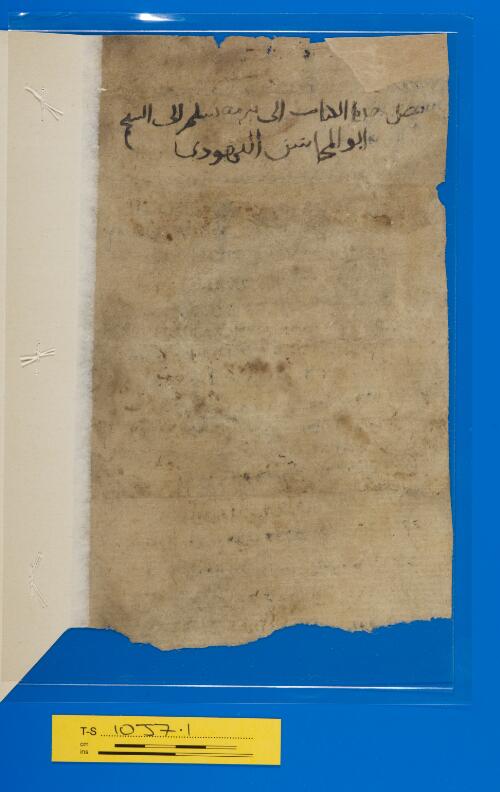 يصل هذا الكتاب الى يسلم الى الشيخ
ابو المحاسن اليهودي
T-S 10J7.1
cm
ins